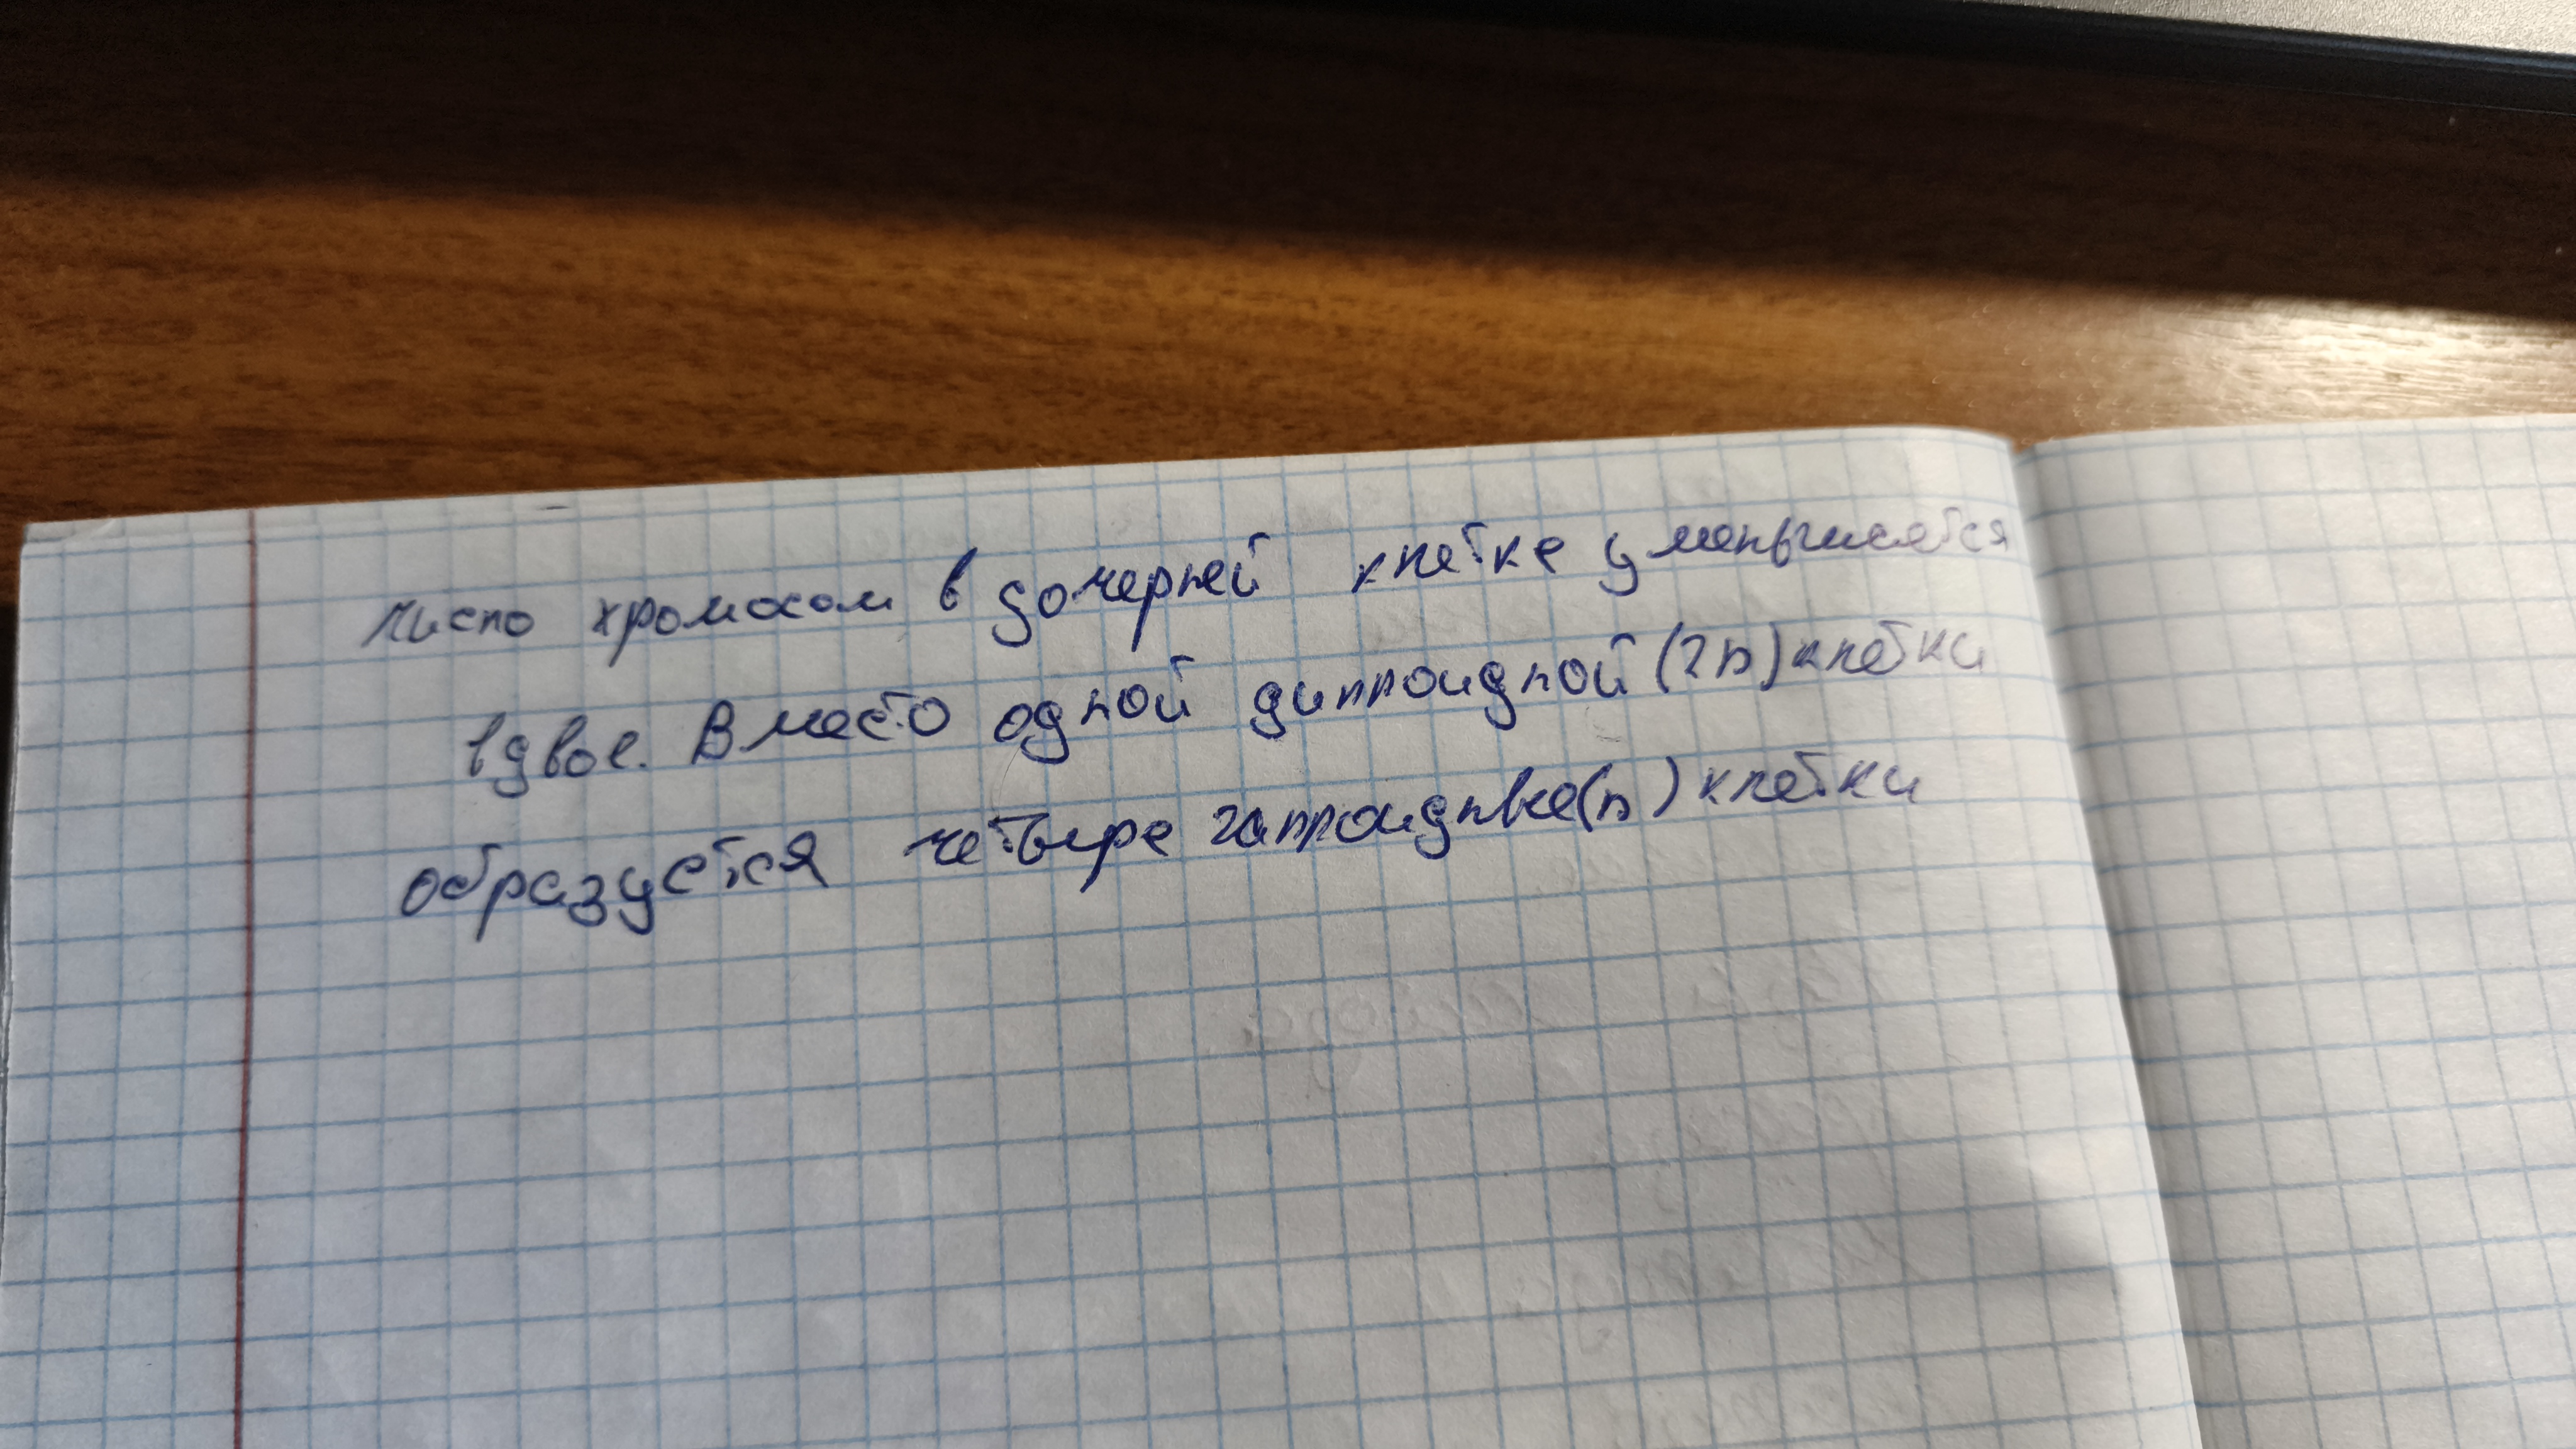 число хромосом в дочерней клетке уменьшается
вдвое. Вместо одной диплоидной (2n) клетки
образуется четыре гаплоидные (n) клетки